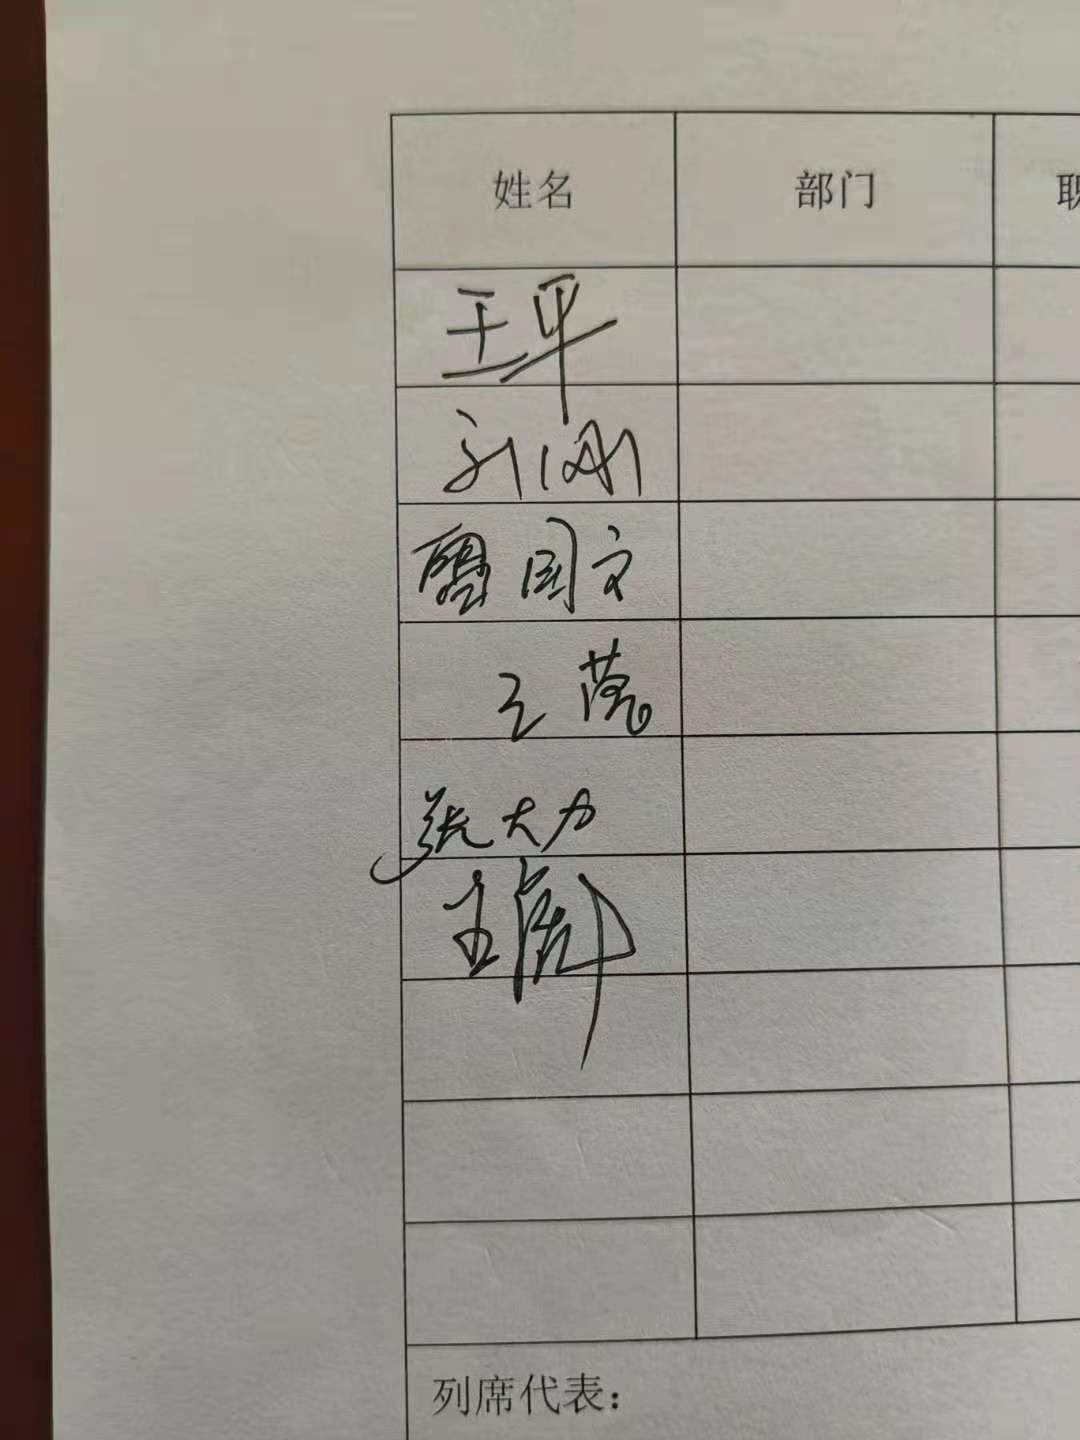 姓名 部门 职
王平
刘刚
国文
王莹
张大力
王
列席代表：